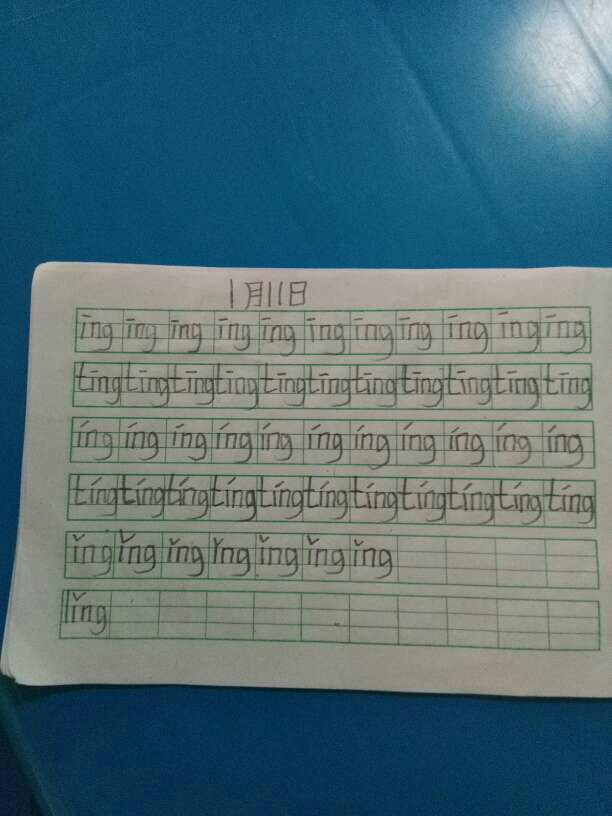 1月11日
īng īng īng īng īng īng īng īng īng īng īng
tīng tīng tīng tīng tīng tīng tīng tīng tīng tīng tīng
íng íng íng íng íng íng íng íng íng íng íng
tíng tíng tíng tíng tíng tíng tíng tíng tíng tíng tíng
ǐng ǐng ǐng ǐng ǐng ǐng ǐng
lǐng